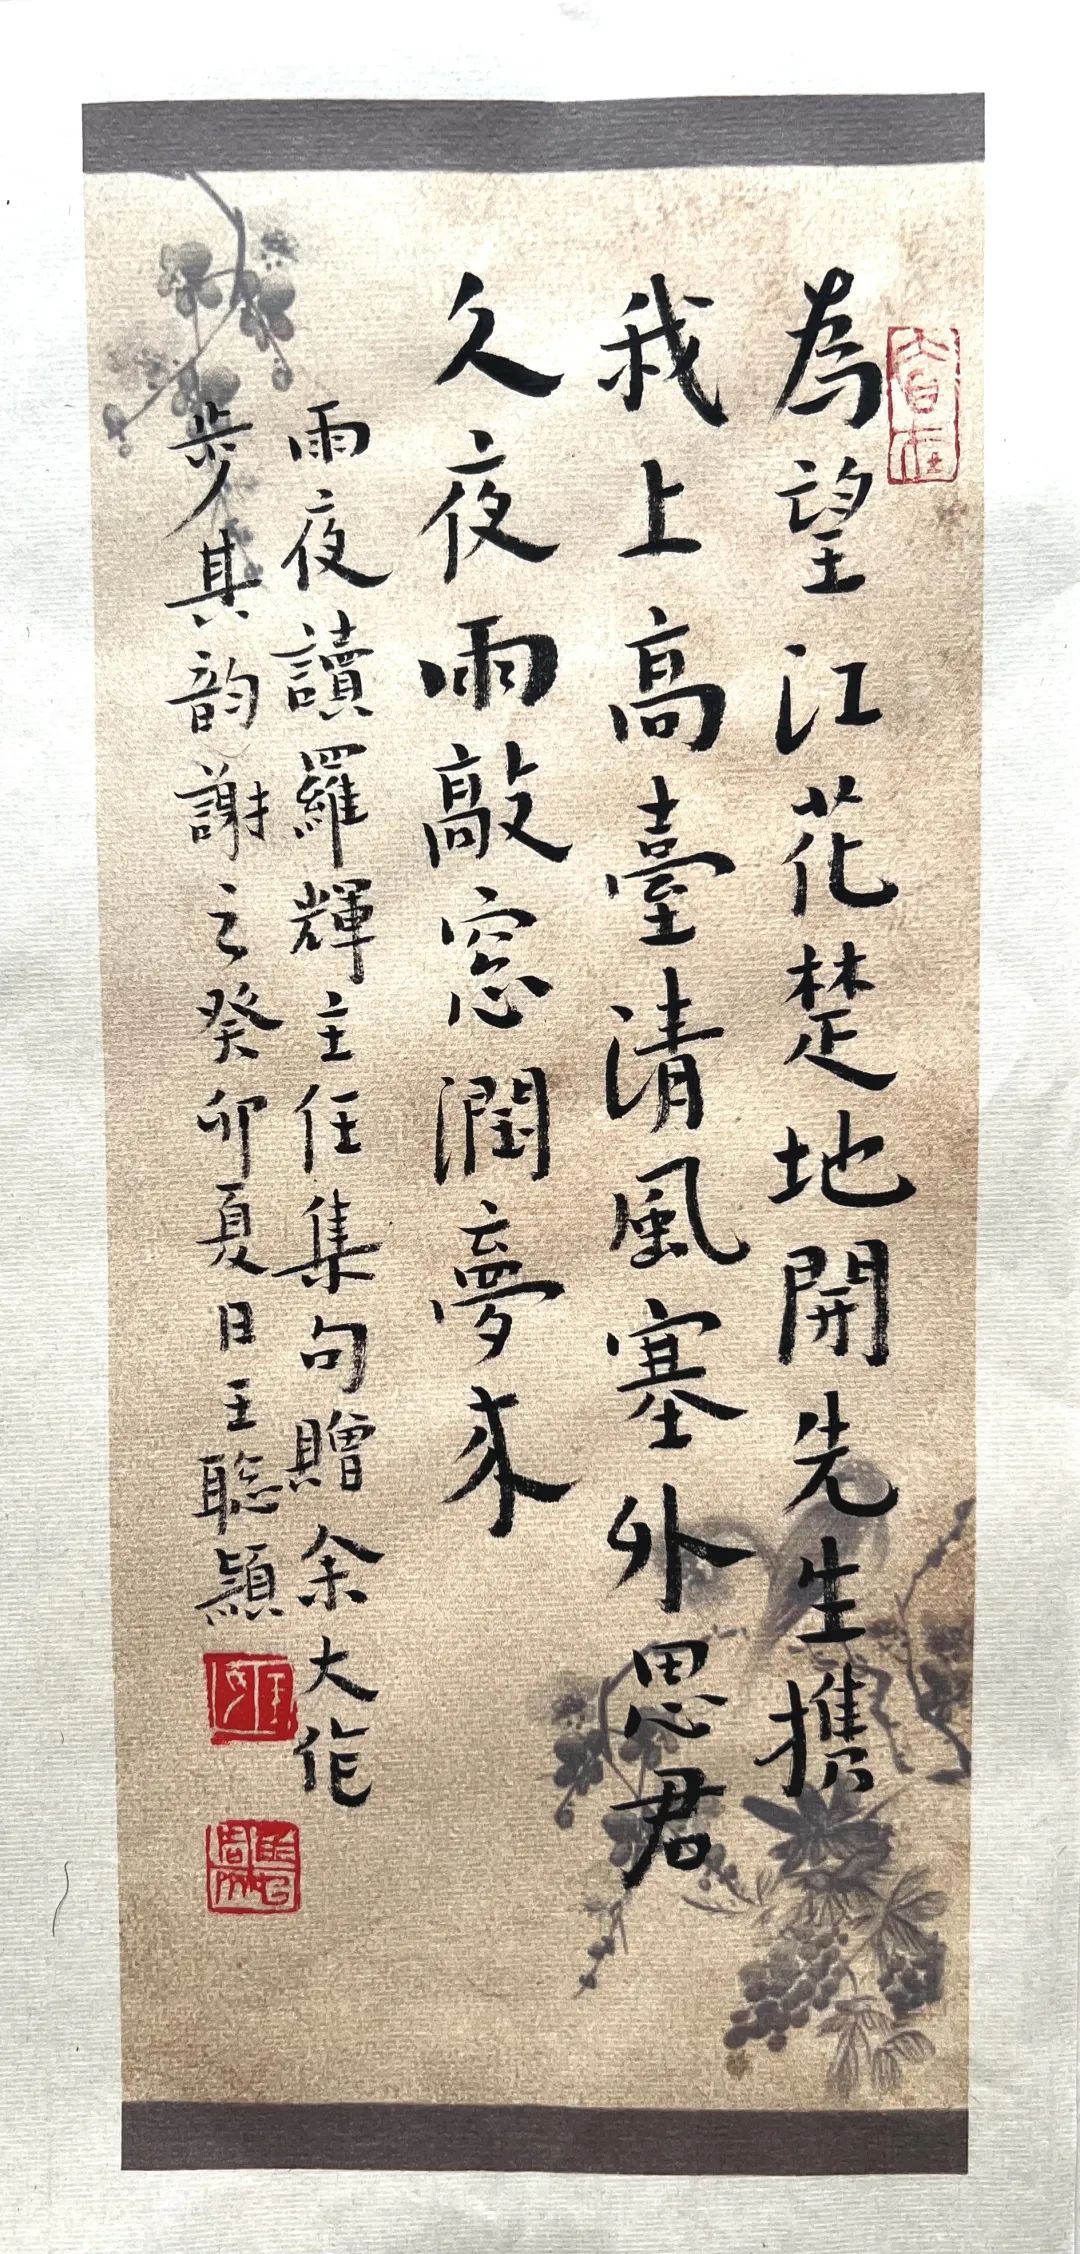 為望江花楚地開先生攜
我上高臺清風塞外思君
久夜雨敲窓潤夢來
雨夜讀羅輝主任集句贈余大作
步其韵謝之癸卯夏日王聰穎